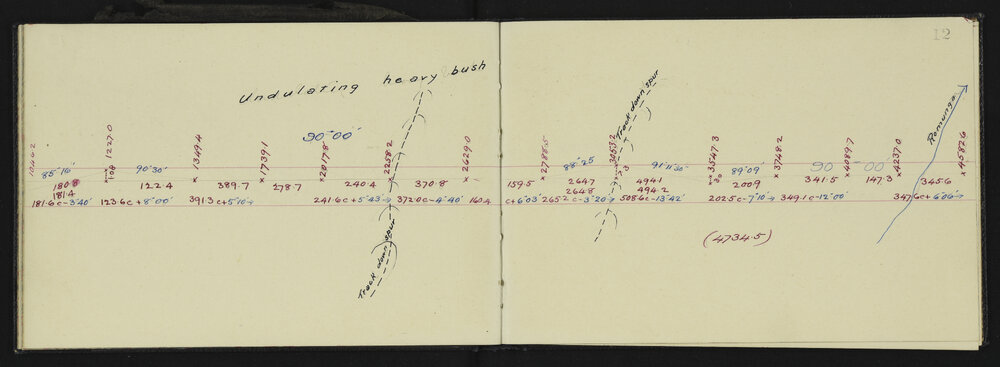 12
Undulating heavy bush
90°00'
1046.2
1227.0
1349.4
1739.1
2017.8
2258.2
2629.0
85·16'
90°30'
180.8
122.4
389.7
278.7
240.4
370.8
181.4
181.6c-3°40'
123.6c+8°00'
391.3c+5°10→
241.6c+5°43→
372.0c-4°40'
160.4
Track down spur
Track down spur
Romunga
2788.5
3053.2
3547.3
3748.2
4089.7
4237.0
4582.6
88°25
91°11'30"
89°09
90°00'
159.5
264.7
494.1
200.9
341.5
147.3
345.6
264.8
494.2
c+6°03'
265.2c-3°20→
508.6c-13°42'
202.5c-7°10→
349.1c-12°00'
347.6c+6°06→
(4734.5)